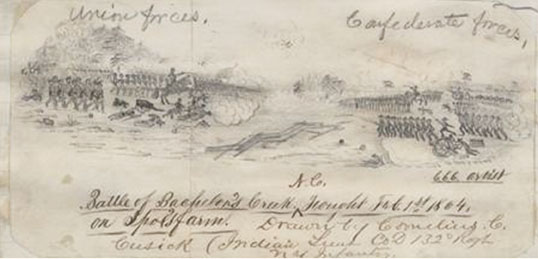 Union forces.
Confederate forces,
CCC artist
N.C.
Battle of Bachelor's Creek, Fought Feb. 1st 1864.
on Spolsfarm. Drawn by Cornelius. C.
Cusick (Indian) Lieut Co D 132d Regt
N.Y. Infantry.